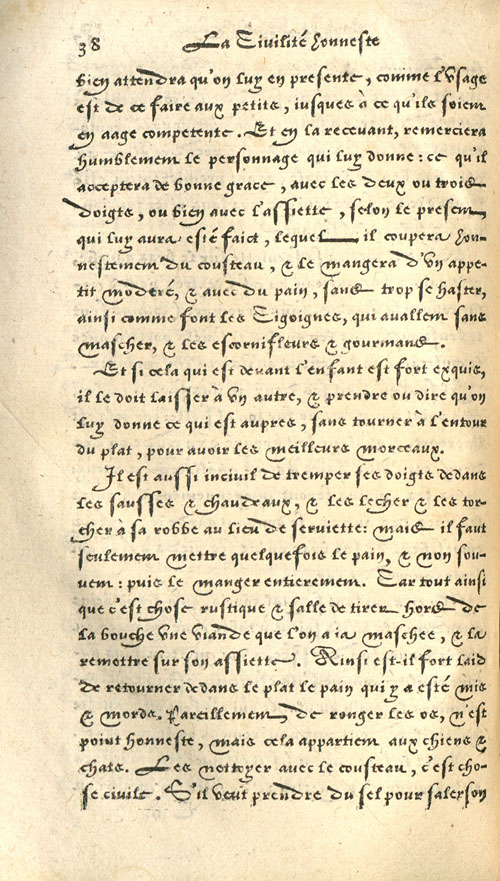 38 La Civilité honneste
bien attendra qu'on luy en presente, comme l'vsage
est de ce faire aux petits, iusques à ce qu'ils soient
en aage competente. Et en la recevant, remerciera
humblement le personnage qui luy donne: ce qu'il
acceptera de bonne grace, avec les deux ou trois
doigts, ou bien avec l'assiette, selon le present
qui luy aura esté faict, lequel il coupera hon-
nestement du cousteau, & le mangera d'vn appe-
tit moderé, & avec du pain, sans trop se haster,
ainsi comme font les Cigoignes, qui avallent sans
mascher, & les escornifleurs & gourmans.
Et si cela qui est devant l'enfant est fort exquis,
il le doit laisser à vn autre, & prendre ou dire qu'on
luy donne ce qui est aupres, sans tourner à l'entour
du plat, pour avoir les meilleurs morceaux.
Il est aussi incivil de tremper ses doigts dedans
les sausses & chaudeaux, & les lecher & les tor-
cher à sa robbe au lieu de serviette: mais il faut
seulement mettre quelquefois le pain, & non sou-
vent: puis le manger entierement. Car tout ainsi
que c'est chose rustique & salle de tirer hors de
la bouche vne viande que l'on a ia maschee, & la
remettre sur son assiette. Ainsi est-il fort laid
de retourner dedans le plat le pain qui y a esté mis
& mords. Pareillement, de ronger les os, n'est
point honneste, mais cela appartient aux chiens &
chats. Les nettoyer avec le cousteau, c'est cho-
se civile. S'il veut prendre du sel pour saler son